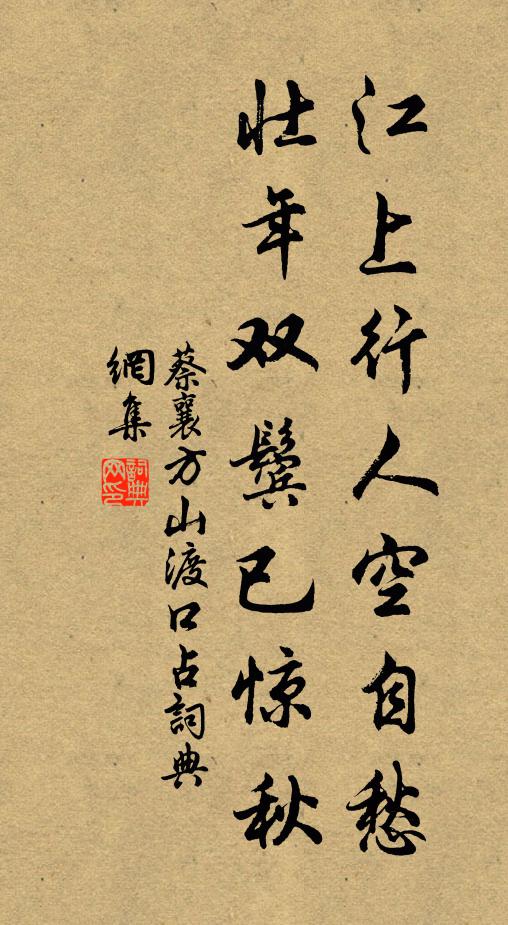 江上行人空自愁
壮年双鬓已惊秋
蔡襄方山渡口占詞典
網集
詞典
网印